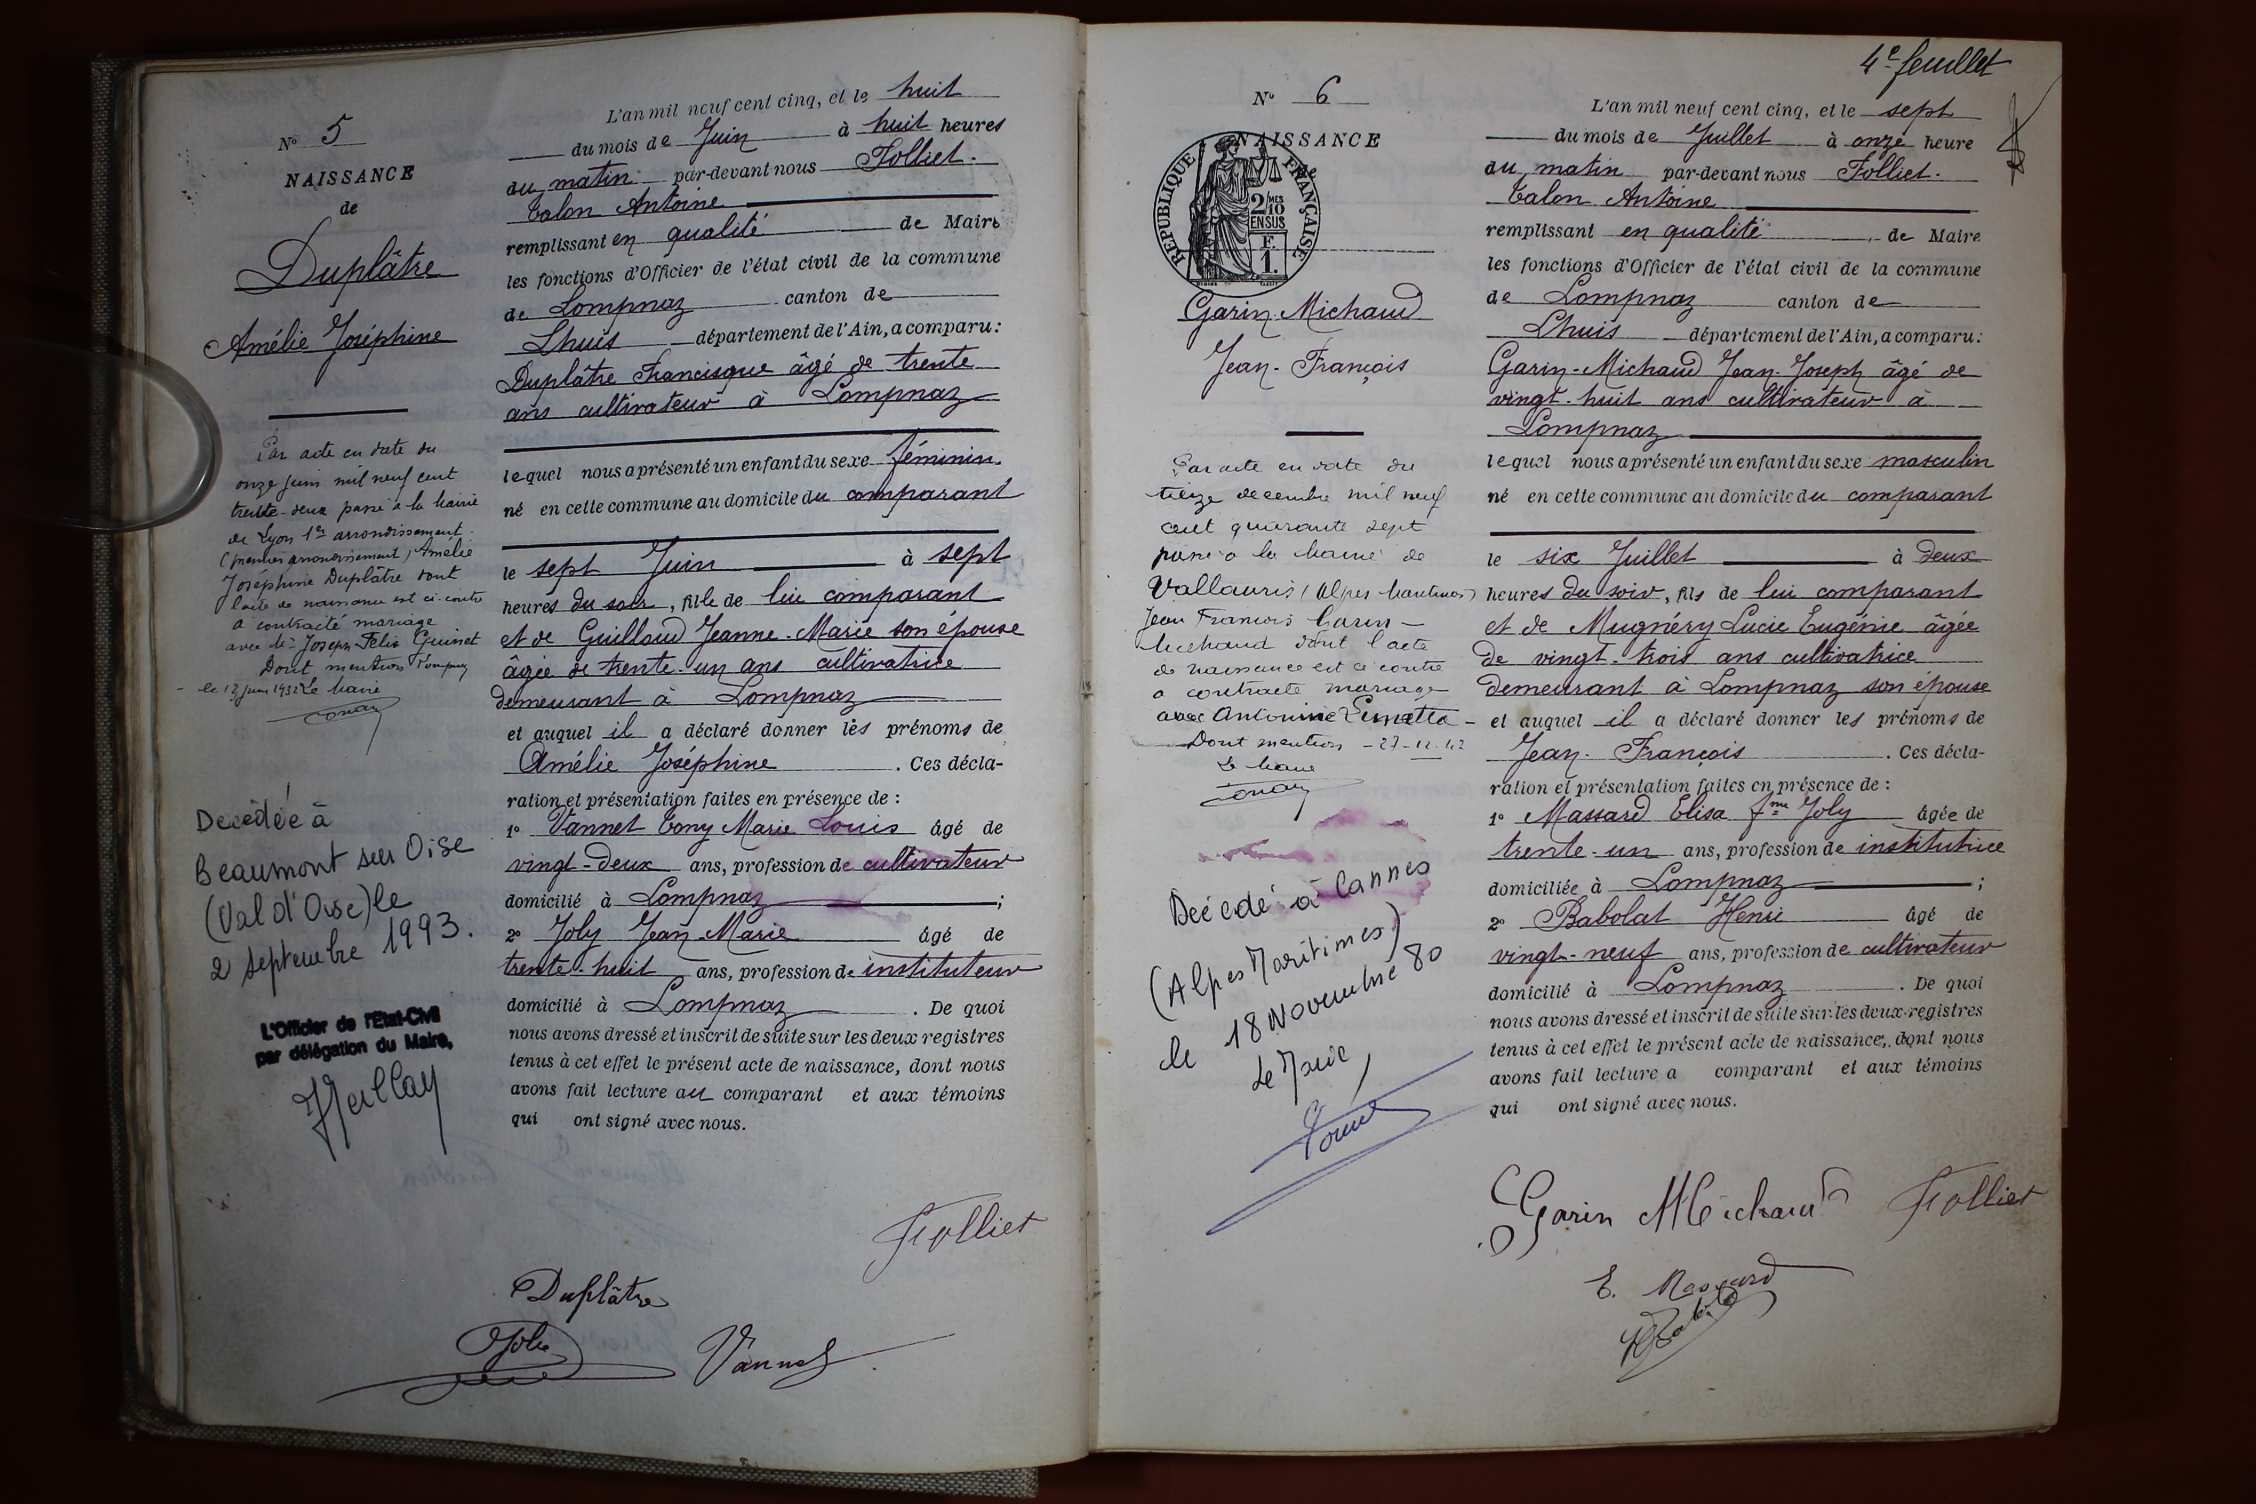 N° 5
NAISSANCE
de
Duplâtre
Amélie Joséphine
Par acte en date du
onze juin mil neuf cent
trente-deux passé à la Mairie
de Lyon 1er arrondissement
(premier arrondissement) Amélie
Joséphine Duplâtre dont
l'acte de naissance est ci-contre
a contracté mariage
avec Mr Joseph Felix Guinet
Dont mention Lompnaz
le 12 juin 1932 Le Maire
Décédée à
Beaumont sur Oise
(Val d'Oise) le
2 septembre 1993.
L'Officier de l'Etat-Civil
par délégation du Maire,
L'an mil neuf cent cinq, et le huit
du mois de Juin à huit heures
du matin par-devant nous Folliet.
Talon Antoine
remplissant en qualité de Maire
les fonctions d'Officier de l'état civil de la commune
de Lompnaz canton de
Lhuis département de l'Ain, a comparu :
Duplâtre Francisque âgé de trente
ans cultivateur à Lompnaz
lequel nous a présenté un enfant du sexe féminin.
né en cette commune au domicile du comparant
le sept Juin à sept
heures du soir, fille de lui comparant
et de Guilland Jeanne-Marie son épouse
âgée de trente-un ans cultivatrice
demeurant à Lompnaz
et auquel il a déclaré donner les prénoms de
Amélie Joséphine . Ces décla-
ration et présentation faites en présence de :
1° Vannet Tony Marie Louis âgé de
vingt-deux ans, profession de cultivateur
domicilié à Lompnaz ;
2° Joly Jean-Marie âgé de
trente-huit ans, profession de instituteur
domicilié à Lompnaz . De quoi
nous avons dressé et inscrit de suite sur les deux registres
tenus à cet effet le présent acte de naissance, dont nous
avons fait lecture au comparant et aux témoins
qui ont signé avec nous.
Folliet
Duplâtre
Joly Vannet
4e feuillet
N° 6
NAISSANCE
de
RÉPUBLIQUE FRANÇAISE
2 MES
10
EN SUS
F.
1.
Garin-Michaud
Jean-François
Par acte en date du
treize decembre mil neuf
cent quarante sept
passé à la Mairie de
Vallauris (Alpes Maritimes)
Jean François Garin-
Michaud dont l'acte
de naissance est ci contre
a contracté mariage
avec Antonine
Dont mention
Le Maire
Décédé à Cannes
(Alpes Maritimes)
le 18 Novembre 80
Le Maire,
L'an mil neuf cent cinq, et le sept
du mois de Juillet à onze heure
du matin par-devant nous Folliet.
Talon Antoine
remplissant en qualité de Maire
les fonctions d'Officier de l'état civil de la commune
de Lompnaz canton de
Lhuis département de l'Ain, a comparu :
Garin-Michaud Jean-Joseph âgé de
vingt-huit ans cultivateur à
Lompnaz
lequel nous a présenté un enfant du sexe masculin
né en cette commune au domicile du comparant
le six Juillet à deux
heures du soir, fils de lui comparant
et de Mugnéry Lucie Eugénie âgée
de vingt-trois ans cultivatrice
demeurant à Lompnaz son épouse
et auquel il a déclaré donner les prénoms de
Jean-François . Ces décla-
ration et présentation faites en présence de :
1° Massard Elisa fme Joly âgée de
trente-un ans, profession de institutrice
domiciliée à Lompnaz ;
2° Babolat Henri âgé de
vingt-neuf ans, profession de cultivateur
domicilié à Lompnaz . De quoi
nous avons dressé et inscrit de suite sur les deux registres
tenus à cet effet le présent acte de naissance, dont nous
avons fait lecture a comparant et aux témoins
qui ont signé avec nous.
Garin Michaud Folliet
E. Massard